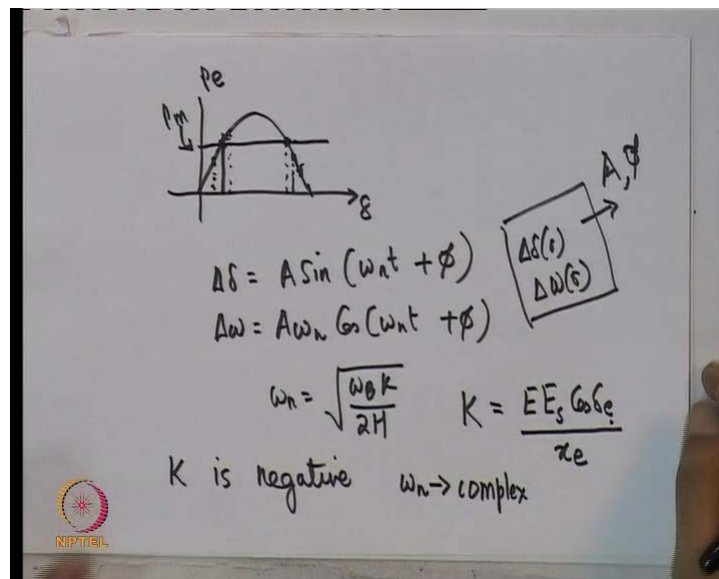 Pe
Pm
δ
Δδ = A Sin (ωnt + φ)
Δω = Aωn Cos (ωnt + φ)
Δδ(0)
Δω(0)
A, φ
ωn = √(ωB K / 2H)
K = E Es Cos δe / xe
K is negative ωn → complex
NPTEL